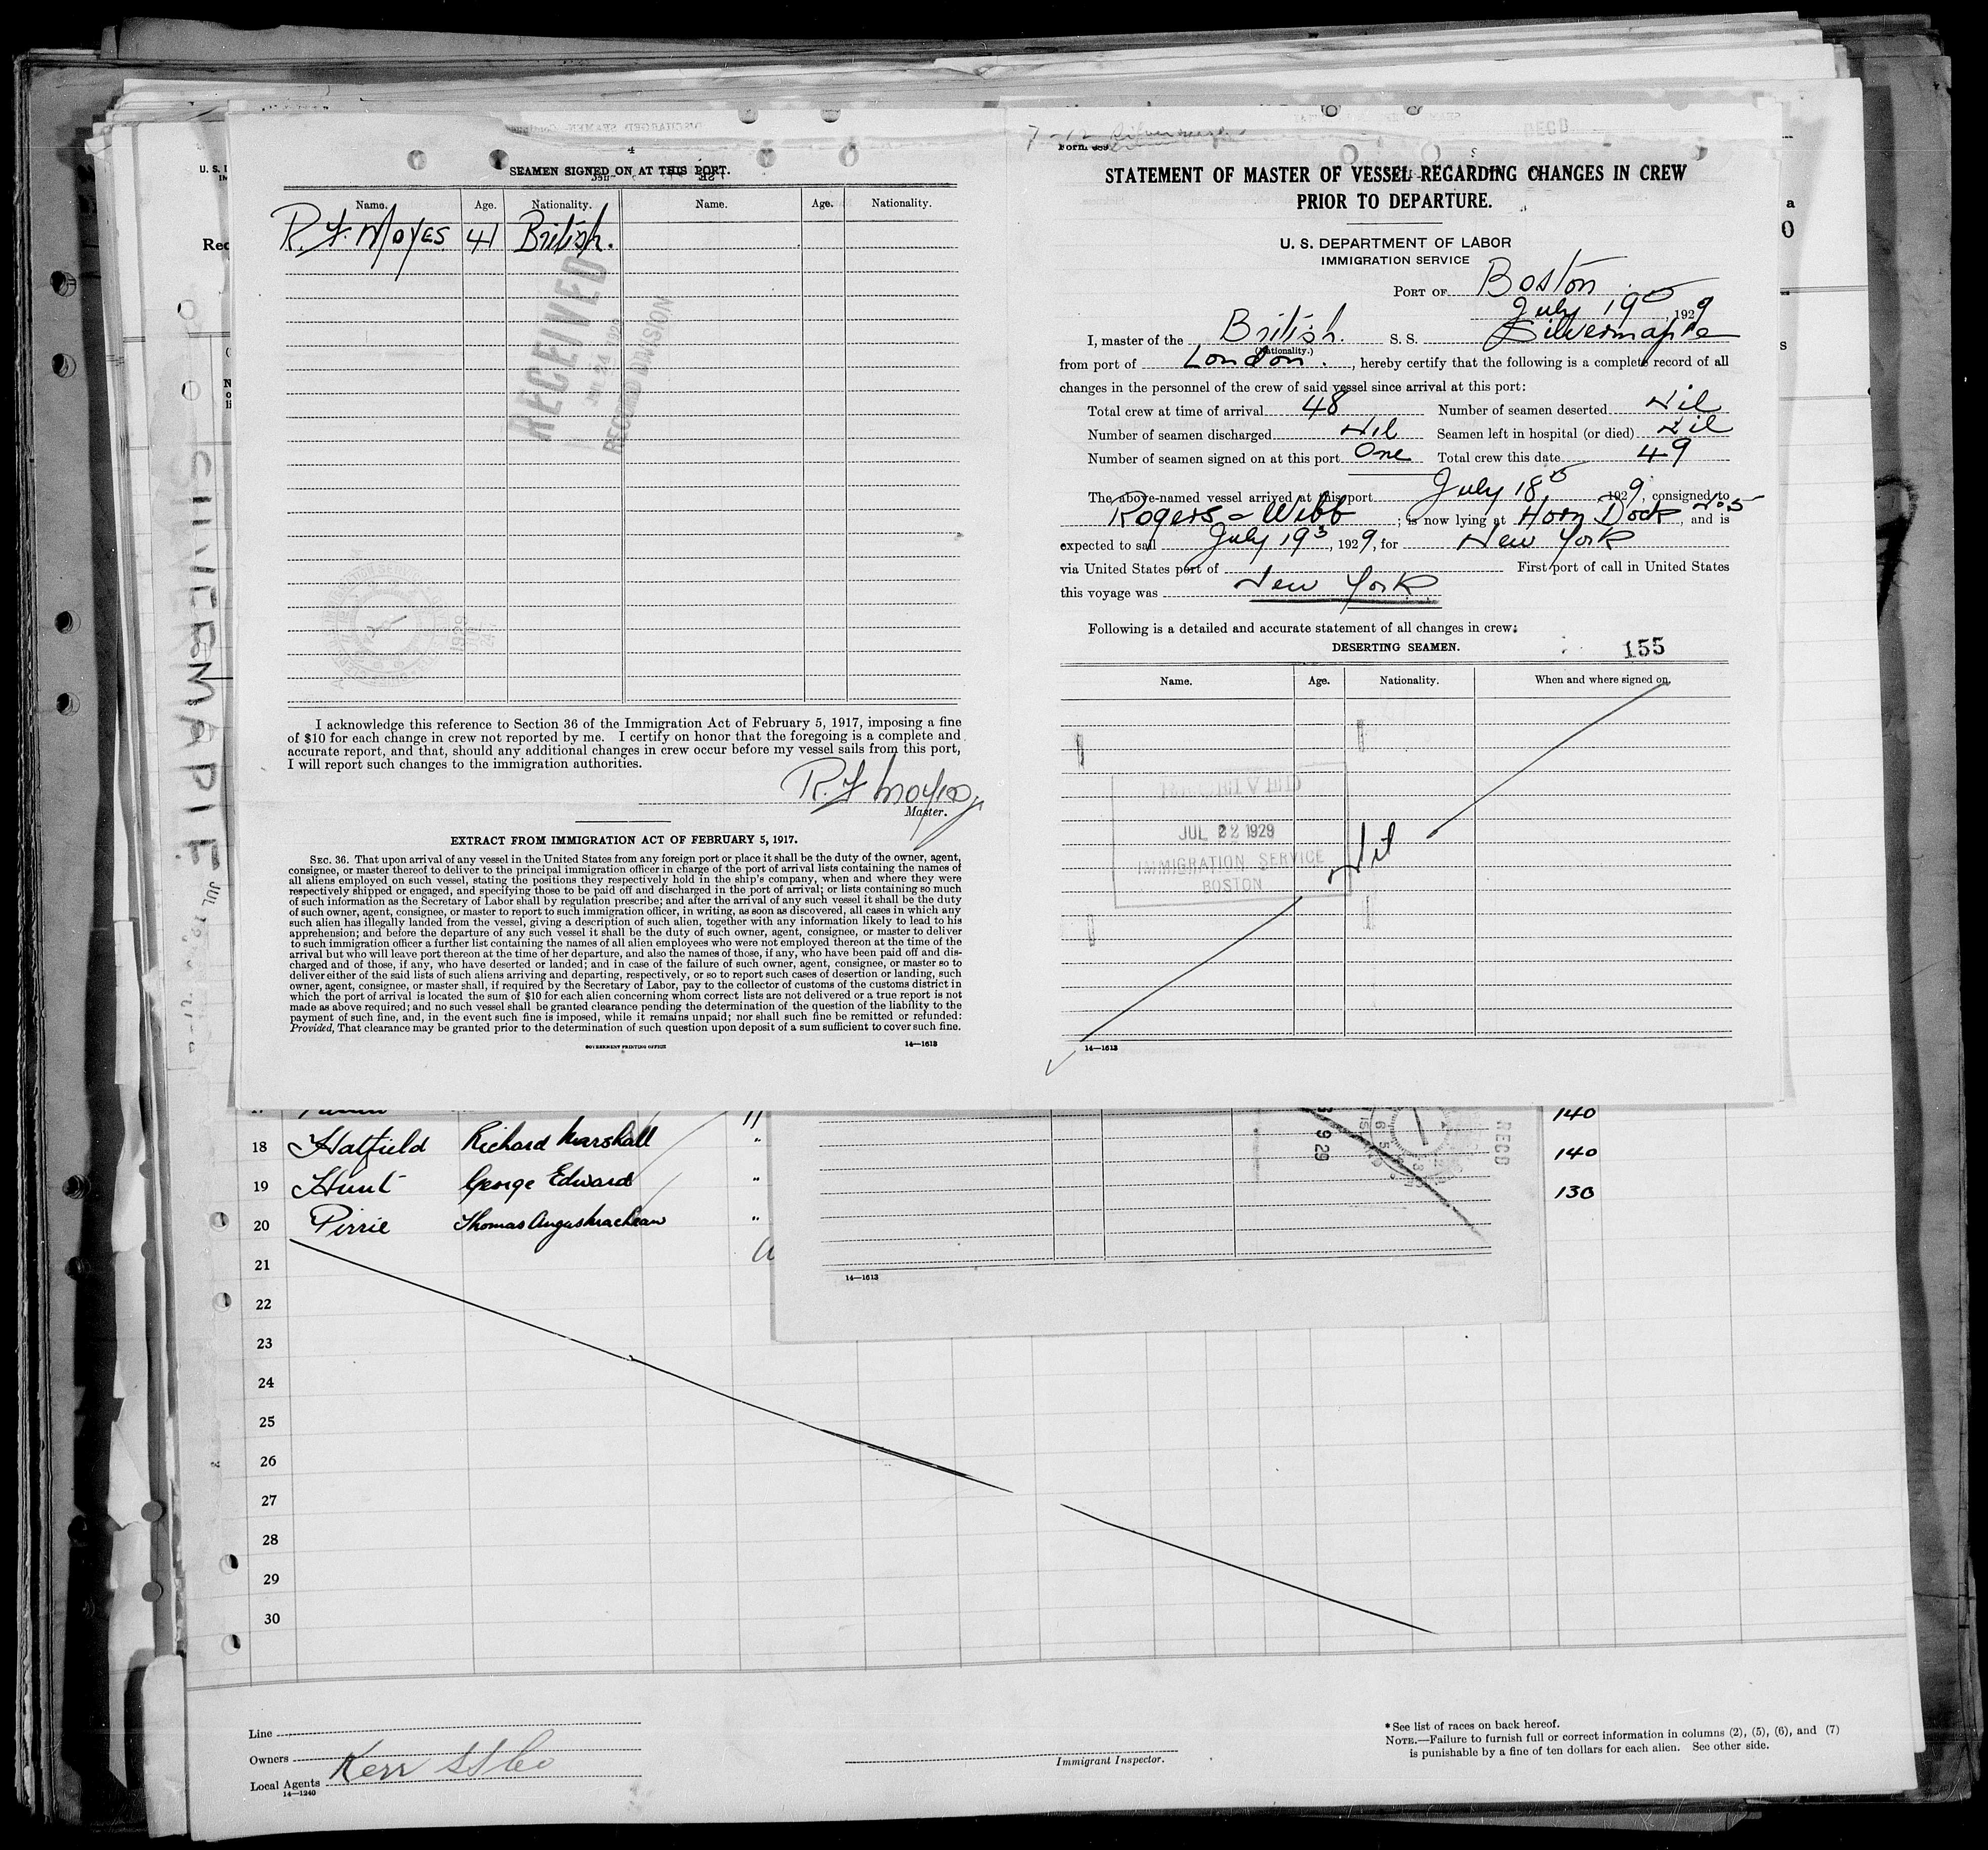 4
SEAMEN SIGNED ON AT THIS PORT.
Name. Age. Nationality. Name. Age. Nationality.
R. F. Moyes 41 British.
RECEIVED
JUL 24 1929
RECORD DIVISION
I acknowledge this reference to Section 36 of the Immigration Act of February 5, 1917, imposing a fine
of $10 for each change in crew not reported by me. I certify on honor that the foregoing is a complete and
accurate report, and that, should any additional changes in crew occur before my vessel sails from this port,
I will report such changes to the immigration authorities.
R. F Moyes
Master.
EXTRACT FROM IMMIGRATION ACT OF FEBRUARY 5, 1917.
SEC. 36. That upon arrival of any vessel in the United States from any foreign port or place it shall be the duty of the owner, agent,
consignee, or master thereof to deliver to the principal immigration officer in charge of the port of arrival lists containing the names of
all aliens employed on such vessel, stating the positions they respectively hold in the ship's company, when and where they were
respectively shipped or engaged, and specifying those to be paid off and discharged in the port of arrival; or lists containing so much
of such information as the Secretary of Labor shall by regulation prescribe; and after the arrival of any such vessel it shall be the duty
of such owner, agent, consignee, or master to report to such immigration officer, in writing, as soon as discovered, all cases in which any
such alien has illegally landed from the vessel, giving a description of such alien, together with any information likely to lead to his
apprehension; and before the departure of any such vessel it shall be the duty of such owner, agent, consignee, or master to deliver
to such immigration officer a further list containing the names of all alien employees who were not employed thereon at the time of the
arrival but who will leave port thereon at the time of her departure, and also the names of those, if any, who have been paid off and dis-
charged and of those, if any, who have deserted or landed; and in case of the failure of such owner, agent, consignee, or master so to
deliver either of the said lists of such aliens arriving and departing, respectively, or so to report such cases of desertion or landing, such
owner, agent, consignee, or master shall, if required by the Secretary of Labor, pay to the collector of customs of the customs district in
which the port of arrival is located the sum of $10 for each alien concerning whom correct lists are not delivered or a true report is not
made as above required; and no such vessel shall be granted clearance pending the determination of the question of the liability to the
payment of such fine, and, in the event such fine is imposed, while it remains unpaid; nor shall such fine be remitted or refunded:
Provided, That clearance may be granted prior to the determination of such question upon deposit of a sum sufficient to cover such fine.
GOVERNMENT PRINTING OFFICE
14—1613
Form 689
STATEMENT OF MASTER OF VESSEL REGARDING CHANGES IN CREW
PRIOR TO DEPARTURE.
U. S. DEPARTMENT OF LABOR
IMMIGRATION SERVICE
PORT OF Boston
July 19, 1929
I, master of the British. S. S. Silvermaple
(Nationality.)
from port of London., hereby certify that the following is a complete record of all
changes in the personnel of the crew of said vessel since arrival at this port:
Total crew at time of arrival 48 Number of seamen deserted Nil
Number of seamen discharged Nil Seamen left in hospital (or died) Nil
Number of seamen signed on at this port One Total crew this date 49
The above-named vessel arrived at this port July 18, 1929, consigned to
Rogers & Webb; is now lying at Hoosy Dock No 5, and is
expected to sail July 19, 1929, for New York
via United States port of First port of call in United States
this voyage was New York
Following is a detailed and accurate statement of all changes in crew:
DESERTING SEAMEN.
155
Name. Age. Nationality. When and where signed on.
RECEIVED
JUL 22 1929
IMMIGRATION SERVICE
BOSTON
Nil
14—1613
SILVERMAPLE
140
18 Hatfield Richard Marshall " 140
19 Hunt George Edward " 130
20 Pirrie Thomas Angus Maclean "
21
22
23
24
25
26
27
28
29
30
RECD
929
14—1613
Line
Owners
Local Agents Kerr SS Co
14—1240
Immigrant Inspector.
* See list of races on back hereof.
NOTE.—Failure to furnish full or correct information in columns (2), (5), (6), and (7)
is punishable by a fine of ten dollars for each alien. See other side.